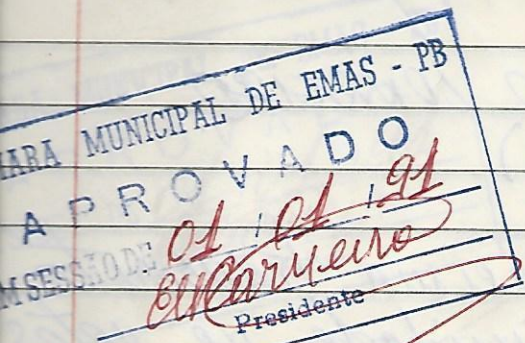 MARA MUNICIPAL DE EMAS - PB
APROVADO
M SESSÃO DE 01 / 01 / 91
Presidente